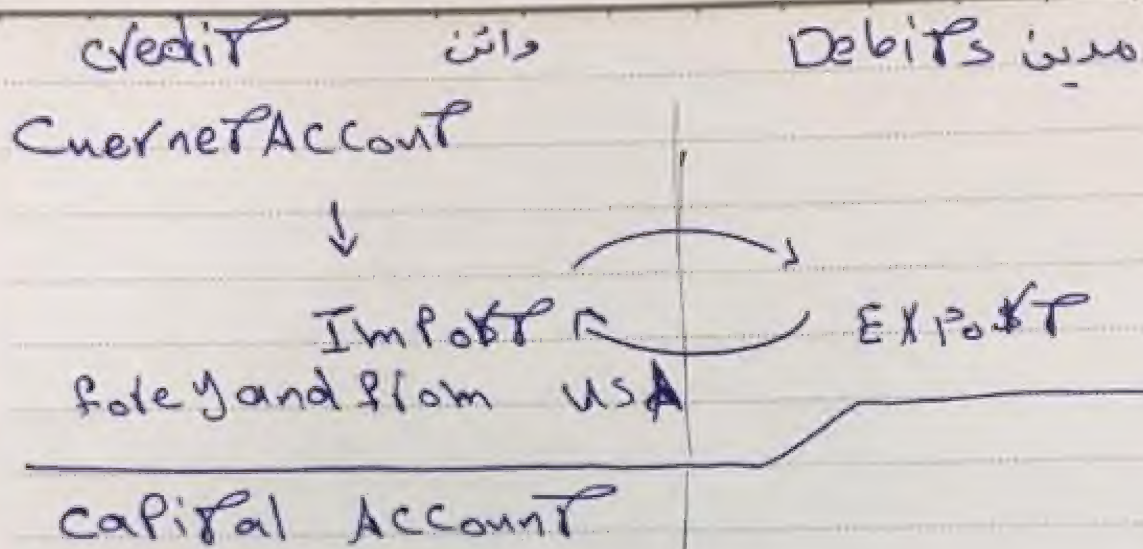 credit دائن Debits مدين
Cuernet Account
Import Export
from USA
Capital Account